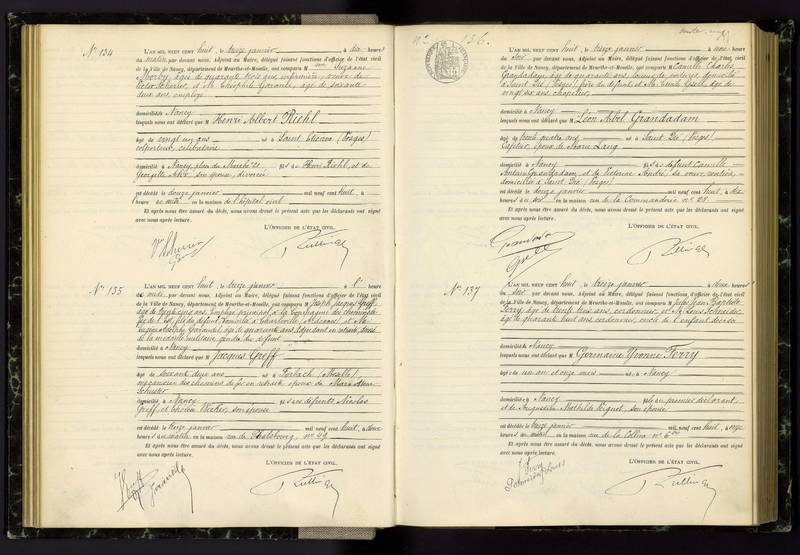 N° 134
L'AN MIL NEUF CENT huit, le treize janvier à dix heures
du matin par devant nous, Adjoint au Maire, délégué faisant fonctions d'officier de l'état civil
de la Ville de Nancy, département de Meurthe-et-Moselle, ont comparu Mme Suzanne
âgée de quarante trois ans, infirmière, veuve de
et M. Théophile âgé de soixante
deux ans employé
domiciliés à Nancy
lesquels nous ont déclaré que M Henri Albert Riehl
âgé de vingt un ans né à Saint Etienne (Vosges)
célibataire
domicilié à Nancy, place du Marché 21 fils de Henri Riehl, et de
Georgette son épouse, divorcée
est décédé le douze janvier mil neuf cent huit, à
heures en la maison de l'hôpital civil
Et après nous être assuré du décès, nous avons dressé le présent acte que les déclarants ont signé
avec nous après lecture.
L'OFFICIER DE L'ÉTAT CIVIL.
N° 135
L'AN MIL NEUF CENT huit, le treize janvier à heures
du par devant nous, Adjoint au Maire, délégué faisant fonctions d'officier de l'état civil
de la Ville de Nancy, département de Meurthe-et-Moselle, ont comparu M Joseph Jacques Greff,
âgé de vingt cinq ans, employé principal à la Compagnie des chemins de
fer de l'Est, fils du défunt domicilié à Charleville, Ardennes, et M.
âgé de quarante ans, adjudant en retraite, décoré
de la médaille militaire, gendre du défunt
domicilié à Nancy
lesquels nous ont déclaré que M Jacques Greff
âgé de soixante deux ans né à Forbach (Moselle),
mécanicien des chemins de fer en retraite époux de Marie Anne
Schuster
domicilié à Nancy fils des défunts Nicolas
Greff, et son épouse
est décédé le treize janvier mil neuf cent huit, à deux
heures du matin en la maison rue de Phalsbourg, n° 49
Et après nous être assuré du décès, nous avons dressé le présent acte que les déclarants ont signé
avec nous après lecture.
L'OFFICIER DE L'ÉTAT CIVIL.
N° 136.
L'AN MIL NEUF CENT huit, le treize janvier à une heures
du soir par devant nous, Adjoint au Maire, délégué faisant fonctions d'officier de l'état civil
de la Ville de Nancy, département de Meurthe-et-Moselle, ont comparu M Camille Charles
Grandadam, âgé de quarante ans, loueur de voitures, domicilié
à Saint Dié (Vosges) frère du défunt et M. Emile Gsell, âgé de
vingt six ans, chapelier
domicilié à Nancy
lesquels nous ont déclaré que M Léon Abel Grandadam
âgé de trente quatre ans né à Saint Dié (Vosges)
Cafetier, époux de Marie Lang
domicilié à Nancy fils des défunt Camille
Antoine Grandadam, et de Victorine André, sa veuve, rentière,
domiciliée à Saint Dié (Vosges)
est décédé le douze janvier mil neuf cent huit, à dix
heures du soir en la maison rue de la Commanderie n° 28
Et après nous être assuré du décès, nous avons dressé le présent acte que les déclarants ont signé
avec nous après lecture.
L'OFFICIER DE L'ÉTAT CIVIL.
N° 137
L'AN MIL NEUF CENT huit, le treize janvier à deux heures
du soir par devant nous, Adjoint au Maire, délégué faisant fonctions d'officier de l'état civil
de la Ville de Nancy, département de Meurthe-et-Moselle, ont comparu M Jules Jean Baptiste
Ferry, âgé de trente trois ans, cordonnier, et M. Louis Schneider
âgé de quarante huit ans, cordonnier, oncle de l'enfant décédée
domicilié à Nancy
lesquels nous ont déclaré que M Germaine Yvonne Ferry
âgée de un an et onze mois née à Nancy
domiciliée à Nancy fille du premier déclarant
et de Augustine Mathilde son épouse
est décédée le treize janvier mil neuf cent huit, à onze
heures du matin en la maison rue de la Colline n° 6
Et après nous être assuré du décès, nous avons dressé le présent acte que les déclarants ont signé
avec nous après lecture.
L'OFFICIER DE L'ÉTAT CIVIL.